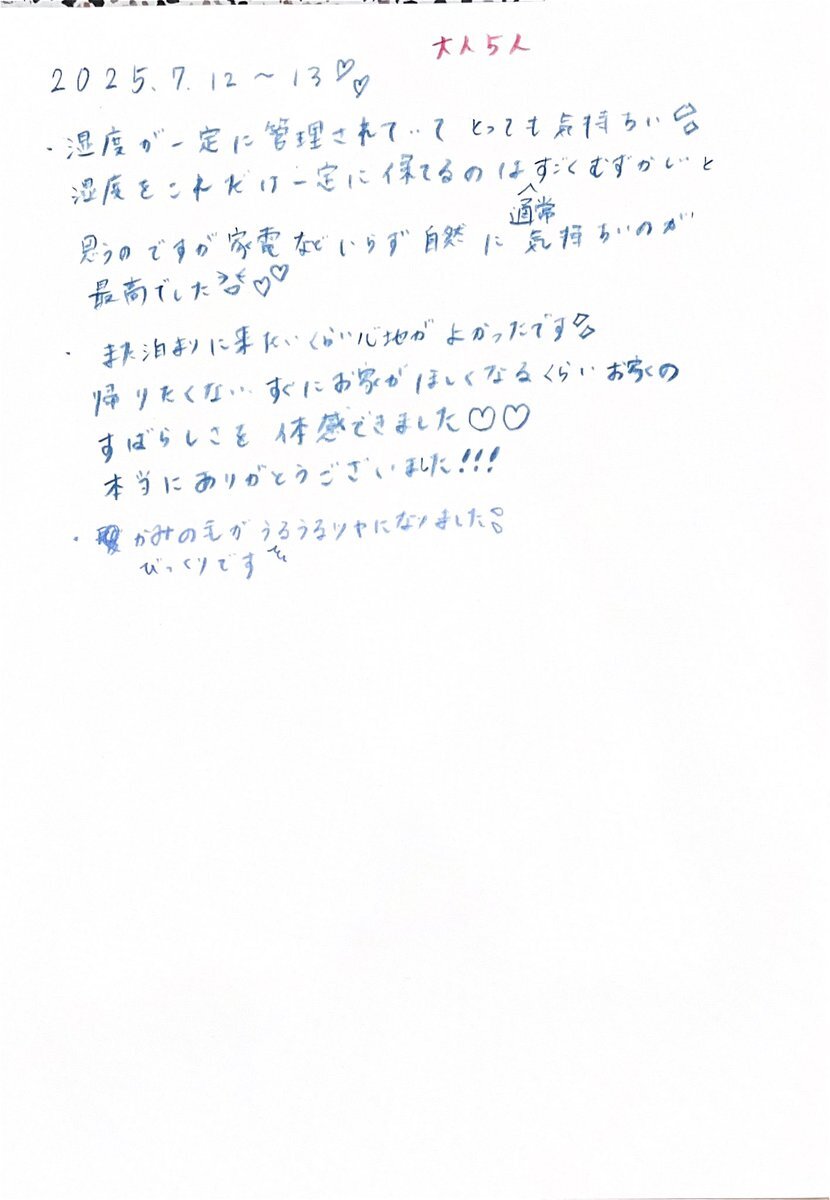 大人5人
2025.7.12〜13♡♡
・湿度が一定に管理されていて とっても気持ちい
湿度をこれだけ一定に保てるのは通常すごくむずかしいと
思うのですが家電などいらず自然に気持ちいのが
最高でした♡♡
・また泊まりに来たいくらい心地がよかったです
帰りたくない すぐにお家がほしくなるくらいお家の
すばらしさを体感できました♡♡
本当にありがとうございました!!!
・かみの毛がうるうるツヤになりました
びっくりです